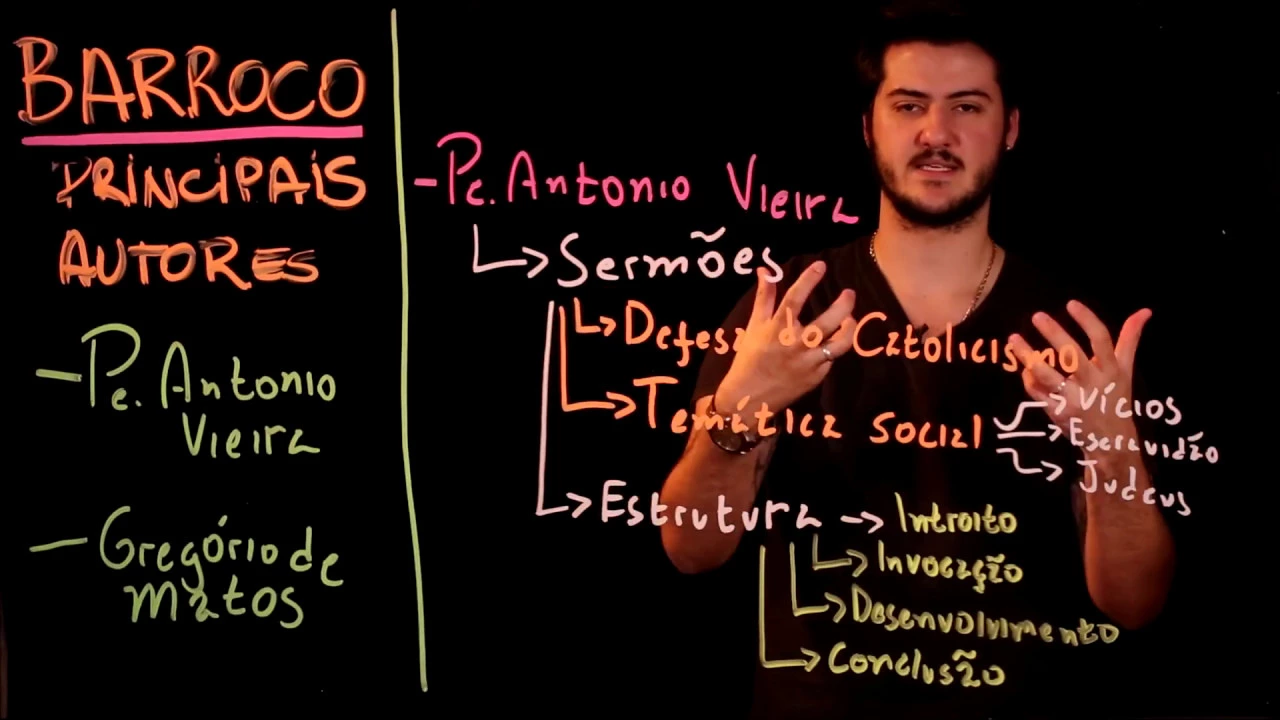 BARROCO
PRINCIPAIS
AUTORES
- Pe. Antonio
Vieira
- Gregório de
Matos
- Pe. Antonio Vieira
→ Sermões
→ Defesa do Catolicismo
→ Temática social
→ Vícios
→ Escravidão
→ Judeus
→ Estrutura → Introito
→ Invocação
→ Desenvolvimento
→ Conclusão